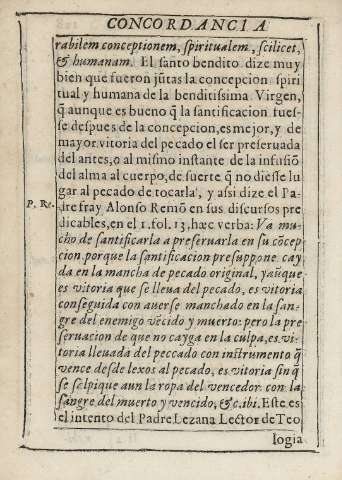 CONCORDANCIA
rabilem conceptionem, spiritualem, scilicet,
& humanam. El santo bendito dize muy
bien que fueron jũtas la concepcion spiri
tual y humana de la benditissima Virgen,
q̃ aunque es bueno q̃ la santificacion fues-
se despues de la concepcion, es mejor, y de
mayor vitoria del pecado el ser preseruada
del antes, o al mismo instante de la infusiõ
del alma al cuerpo, de suerte q̃ no diesse lu
gar al pecado de tocarla, y assi dize el Pa-
P. Re. dre fray Alonso Remõ en sus discursos pre
dicables, en el 1. fol. 13, hæc verba: Va mu-
cho de santificarla a preseruarla en su cõcep
cion, porque la santificacion presuppone cay
da en la mancha de pecado original, y aũque
es vitoria que se lleua del pecado, es vitoria
conseguida con auerse manchado en la san-
gre del enemigo vẽcido y muerto: pero la pre
seruacion de que no cayga en la culpa, es vi-
toria lleuada del peccado con instrumento q̃
vence desde lexos al pecado, es vitoria sin q̃
se salpique aun la ropa del vencedor con la
sangre del muerto y vencido, &c. ibi. Este es
el intento del Padre Lezana Lector de Teo
logia